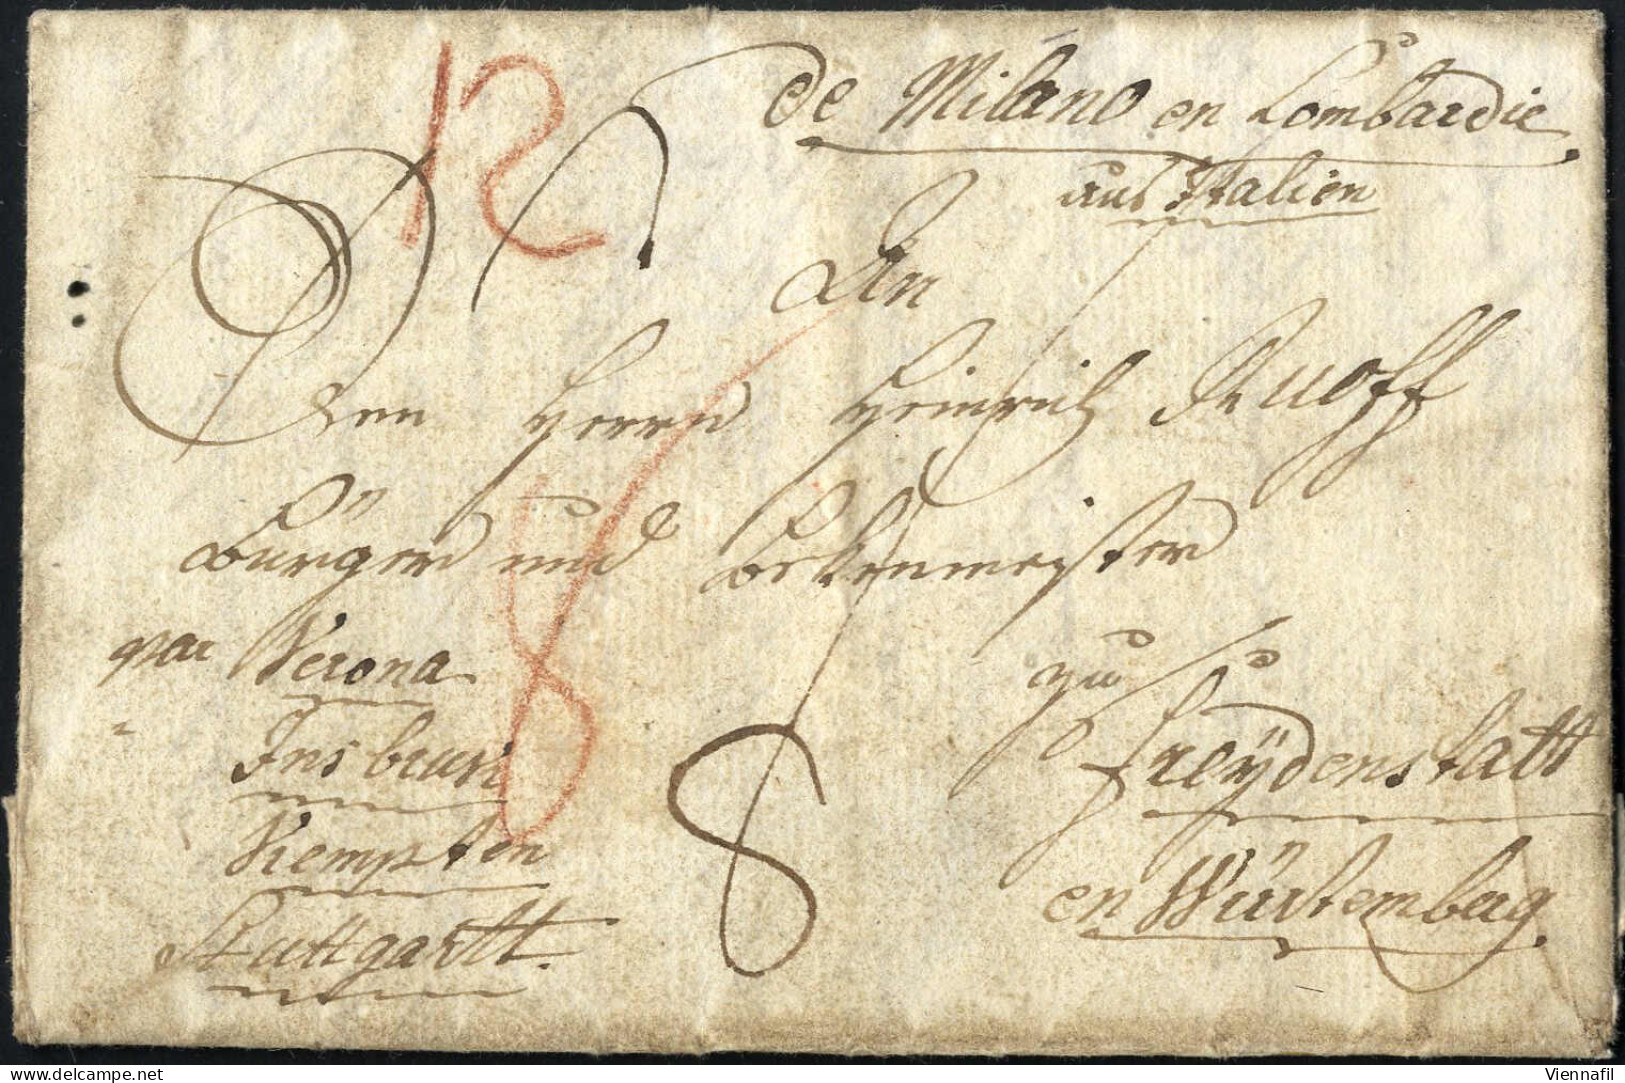 12
de Milano en Lombardie
aus Italien
An
Den Herrn Heinrich Ruoff
Bürger und Bekenmeister
par Verona
Insbruk
Kempten
Stuttgartt.
8
8
zu
Freÿdenstatt
en Würtemberg
delcampe.net
Viennafil